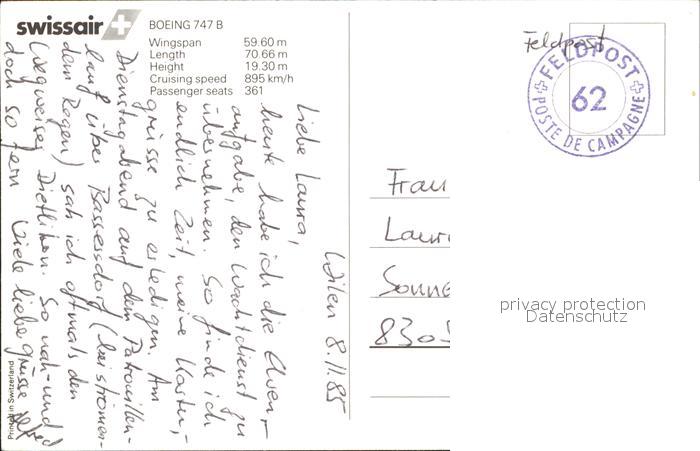 swissair
BOEING 747 B
Wingspan 59.60 m
Length 70.66 m
Height 19.30 m
Cruising speed 895 km/h
Passenger seats 361
Wilen 8.11.85
Liebe Laura,
heute habe ich die Ehren-
aufgabe, den Wachtdienst zu
übernehmen. So finde ich
endlich Zeit, meine Karten-
grüsse zu erledigen. Am
Dienstagabend auf dem Patrouillen-
lauf über Bassersdorf (bei strömen-
dem Regen) sah ich oftmals den
Wegweiser Dietlikon. So nah und
doch so fern. Viele liebe Grüsse
Printed in Switzerland
Feldpost
FELDPOST
62
POSTE DE CAMPAGNE
Frau
Laura
Sonne
8305
privacy protection
Datenschutz